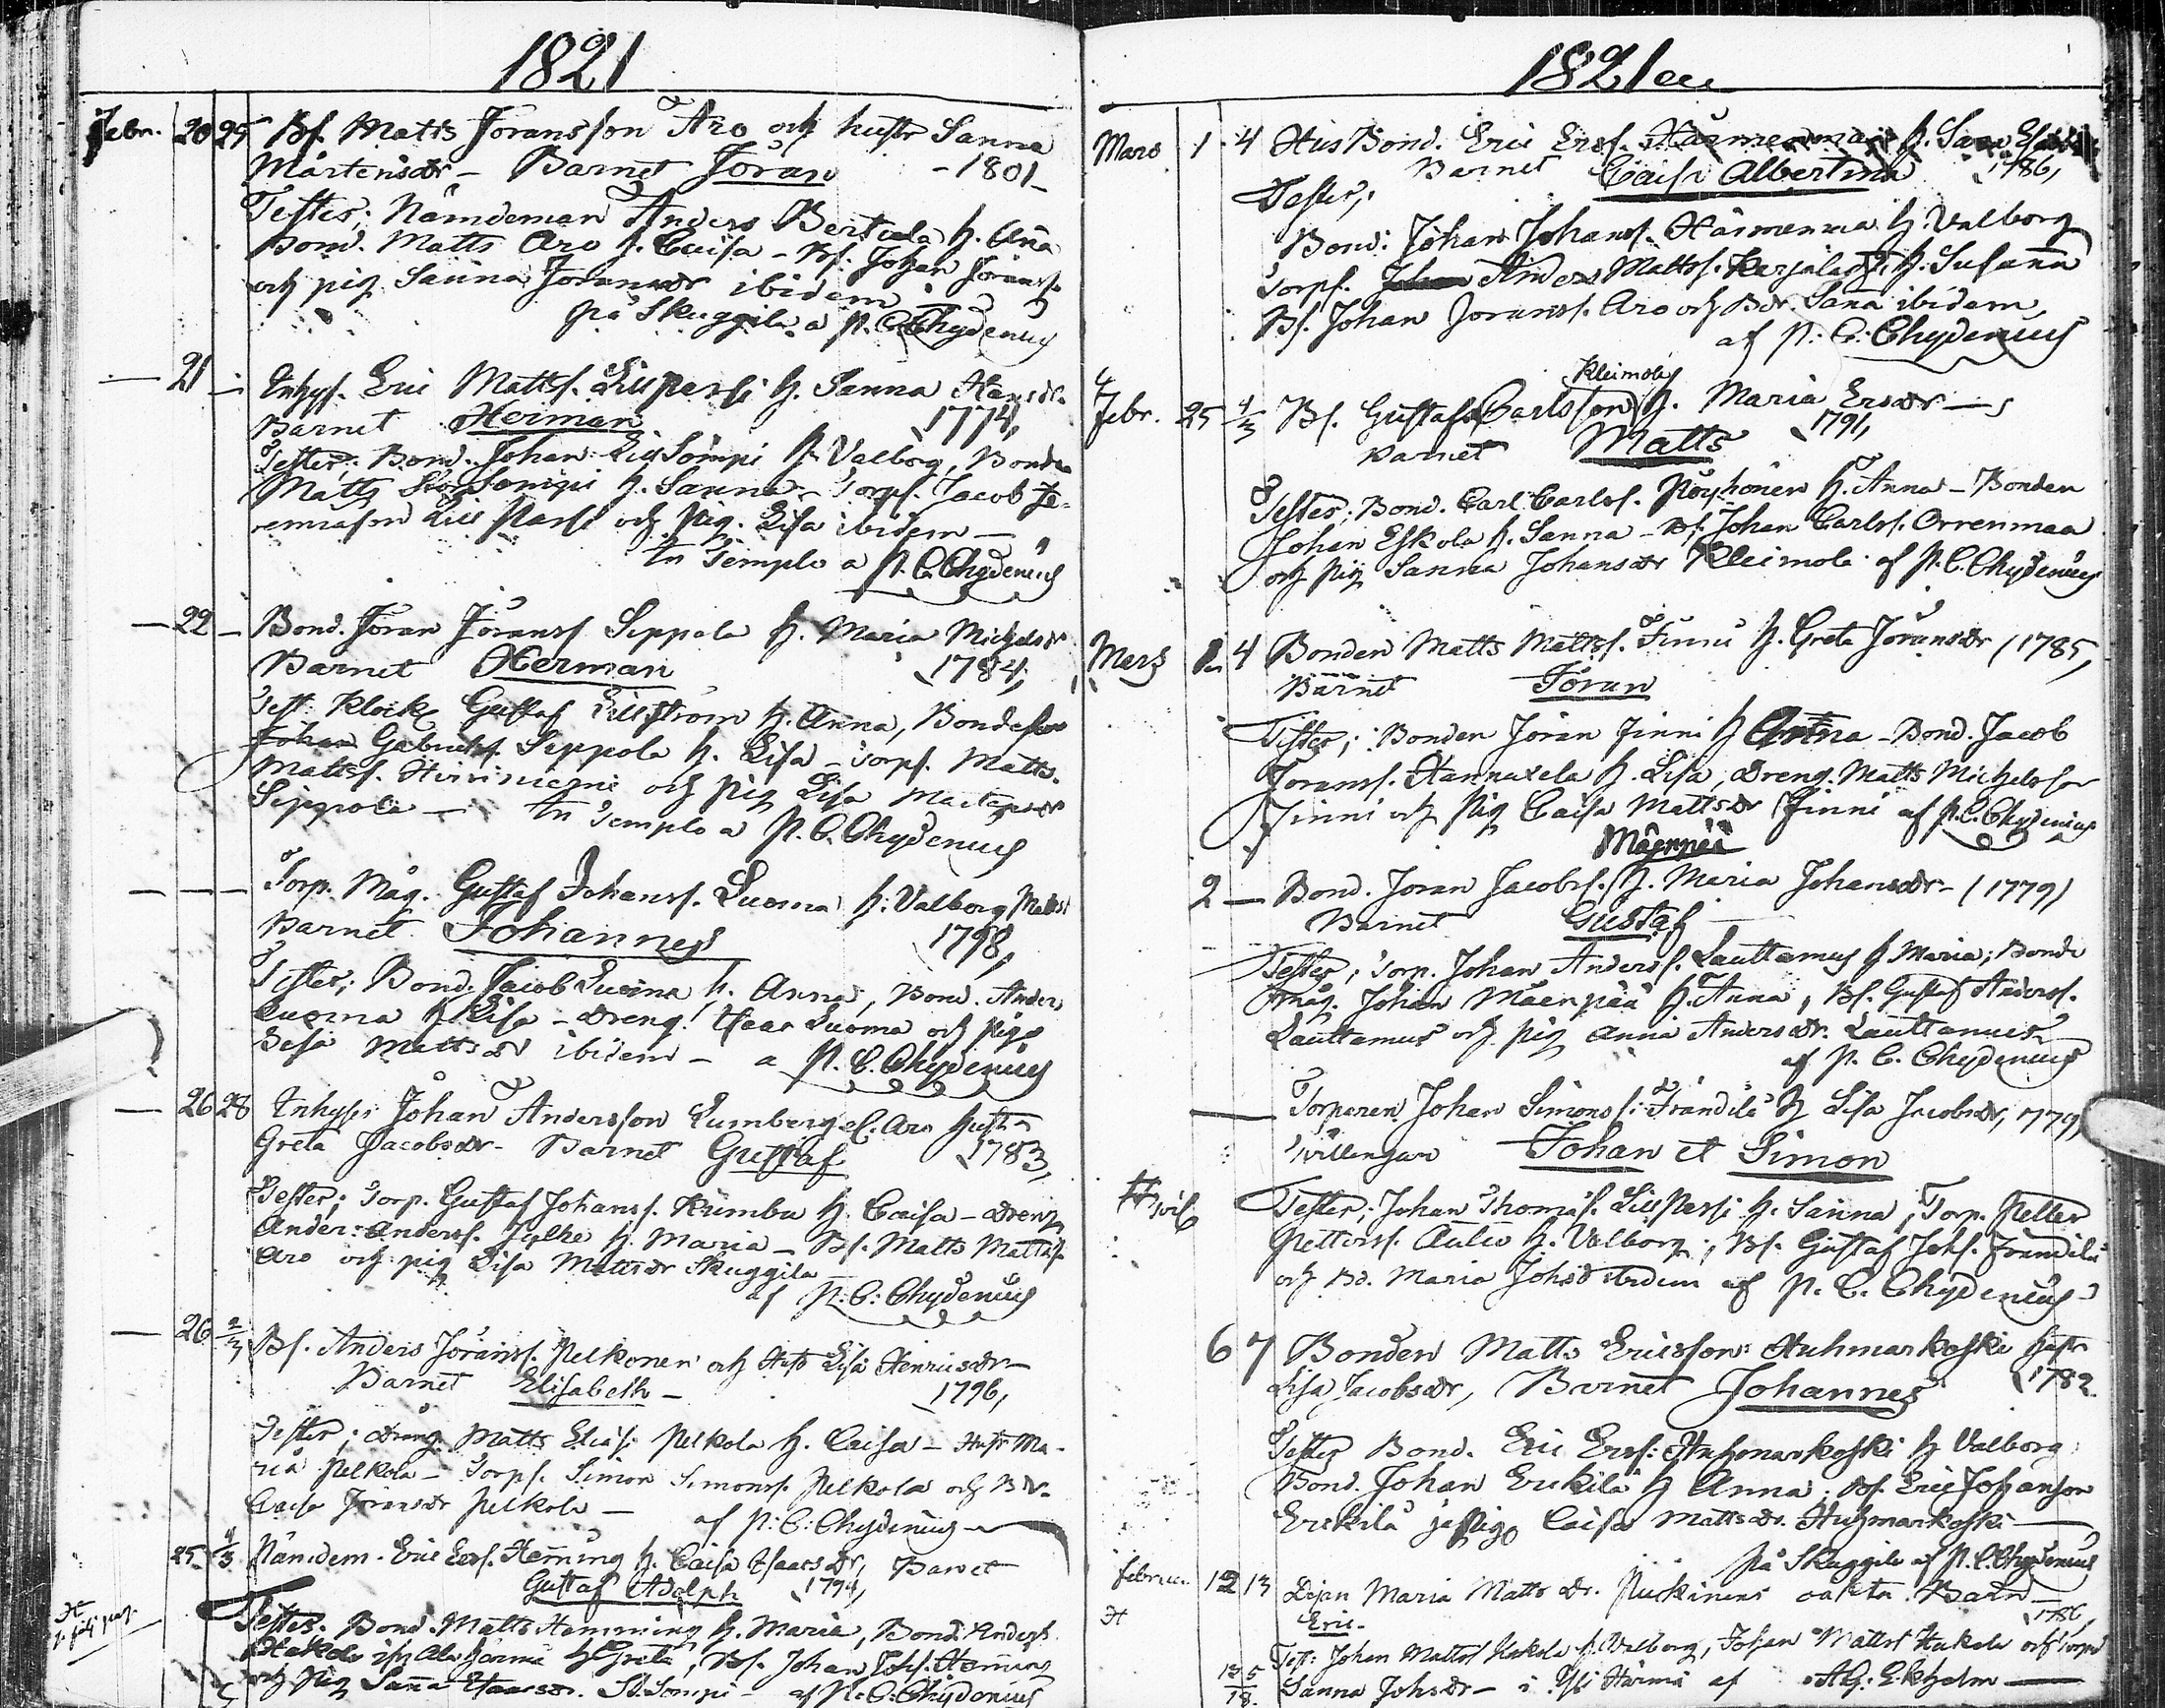 1821
Febr. 20 25 Bs. Matts Joransson Aro och hustr Sanna
Mårtensdr - Barnet Jöran - 1801 -
Testes; Nämdeman Anders Bertula h. Ana
Bond. Matts Aro h. Caisa - Bs. Johan Joranss.
och pig Sanna Joransdr ibidem
på Skuggila a P. C. Chydenius
— 21 — Inhys. Eric Matts. Lillpersi h. Sanna Hansdr.
Barnet Herman 1774,
Testes: Bond. Johan LillSompi h. Valborg, Bonden
Matts StorSompi h. Sanna - Torps. Jacob Je-
remiason Lill Parsi och Pig. Lisa ibidem —
In Templo a P. C. Chydenius
— 22 — Bond. Jöran Jöranss Seppola h. Maria Michelsdr
Barnet Herman 1784,
Test Klock Gustaf Lillstrom h. Anna, Bondeson
Johan Gabriels. Seppola h. Lisa - Torps. Matts
Mattss. Hirviniemi och pig Lisa
Seppola — In Templo a P. C. Chydenius
— — — Torp. Måg. Gustaf Johanss. Luoma h. Valborg Matts
Barnet Johannes 1798,
Testes; Bond. Jacob Luoma h. Anna, Bond. Anders
Luoma h Lisa - Dreng. Isaac Luoma och pig
Lisa Mattsdr ibidem - a P. C. Chydenius
— 26 28 Inhyss Johan Andersson Lumberg el. Aro hustr
Greta Jacobsdr - Barnet Gustaf 1783,
Testes; Torp. Gustaf Johanss. Kumbu h. Caisa - Dreng
Ander: Anderss. Jylhe h. Maria - Bs. Matts Mattss.
Aro och pig Lisa Mattsdr Skuggila
af P. C. Chydenius
— 26 2/3 Bs. Anders Jöranss. Pelkonen och Hust Lisa Henricsdr —
Barnet Elisabeth - 1796,
Testes; dräng Matts Eliass. Pelkola h. Caisa - Hustr Ma-
ria Pelkola - Torps. Simon Simonss. Pelkola och Bdr.
Caisa Jöransdr Pelkola — af P. C. Chydenius
25 4/3 Nämdem. Eric Ers. Hemming h. Caisa Isaacsdr, Barnet
Gustaf Adolph 1794,
Testes. Bond. Matts Hemming h. Maria, Bond. Anders
Hakola i Alahärmä h Greta, Bs. Johan Johs. Heming
och Pig Sanna Isaacsdr. St. Sompi - af P. C. Chydenius
1821
Mars 1 4 Hus Bond. Eric Ersf. Härmenmaa h. Sara
Barnet Caisa Albertina 1786,
Testes;
Bond: Johan Johanss. Härmenmaa h. Valborg
Torps. Johan Anders Mattss. Karjalax h. Susanna
Bs. Johan Joranss. Aro och Bdr Sana ibidem
af P. C. Chydenius
Kleimola
Febr. 25 4/3 Bs. Gustaf Carlsson h. Maria Ersdr —
Barnet Matts 1791,
Testes; Bond. Carl Carlss. Pöyhönen h. Anna - Bonden
Johan Eskola h. Sanna - Bs. Johan Carlss. Orrenmaa
och pig Sanna Johansdr Kleimola af P. C. Chydenius
Mars 4 Bonden Matts Mattss. Finni h. Greta Jöransdr (1785,
Barnet Jöran
Testes; Bonden Jöran Finni h Anna - Bond. Jacob
Joranss. Hannuxela h. Lisa, Dreng. Matts Michelsson
Finni och Pig Caisa Mattsdr Finni af P. C. Chydenius
Mäenpää
2 — Bond. Joran Jacobss. h. Maria Johansdr - (1779)
Barnet Gustaf
Testes; Torp. Johan Anderss. Lauttamus h Maria; Bonde
måg. Johan Mäenpää h. Anna, Bs. Gustaf Anderss.
Lauttamus och pig Anna Andersdr. Lauttamus
af P. C. Chydenius
— Torparen Johan Simonss: Frändilä h Lisa Jacobsdr, 1779,
Tvillingar Johan et Simon
Testes; Johan Thomass. Lillpersi h. Sanna, Torp. Petter
Petterss. Autio h. Valborg; Bs. Gustaf Johs. Frändilä
och Bd. Maria Johsd ibidem af P. C. Chydenius
6 7 Bonden Matts Ericsson Huhmarkoski hustr
Lisa Jacobsdr, Barnet Johannes 1782
Testes Bond. Eric Ersf: Huhmarkoski h Valborg
Bond. Johan Erckilä h Anna; Bs. Eric Johanson
Erckilä pig Caisa Mattsdr. Huhmarkoski —
På Skuggila af P. C. Chydenius
februar. 12 13 Pigan Maria Matts dr. Puskinens oäkta Barn —
Eric. 1786,
Test: Johan Mattss Hakola h. Valborg, Johan Mattss Hakola och
Sanna Johsdr — i Yli Härmä af Ekholm —